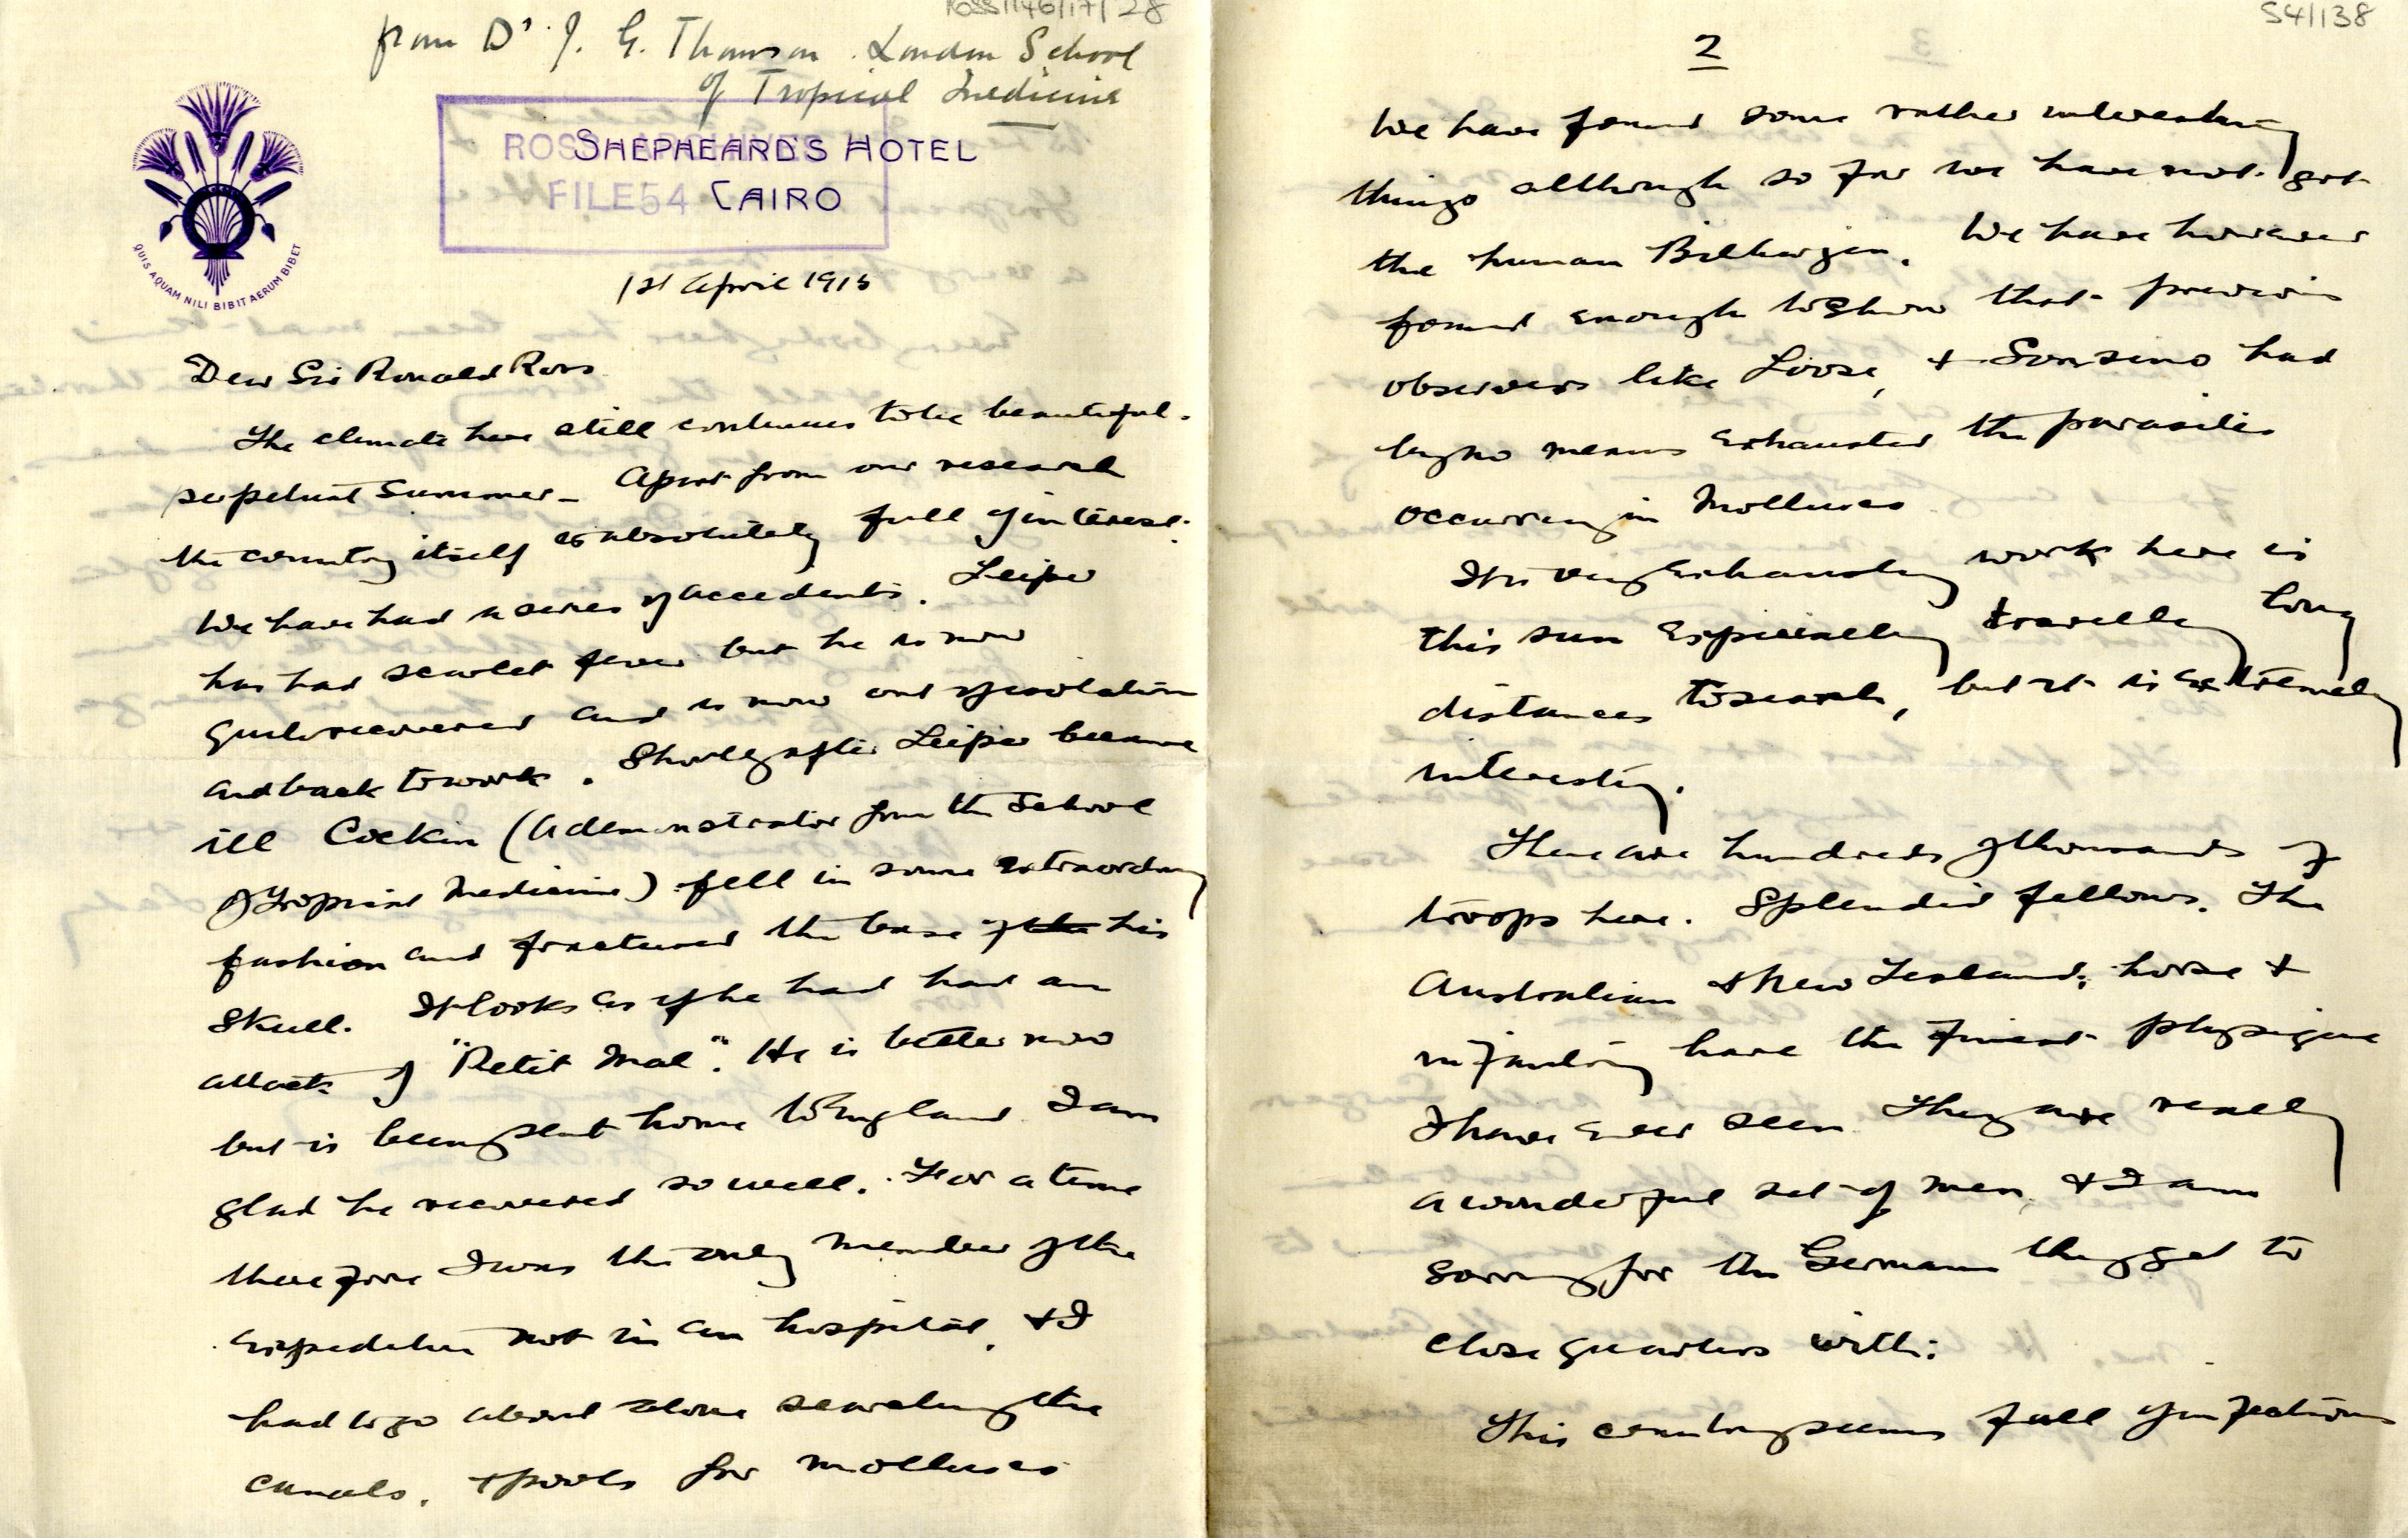 ROSS/146/17/28
from Dr. J. G. Thomson. London School
of Tropical Medicine
ROSS ARCHIVES
FILE 54
SHEPHEARD'S HOTEL
CAIRO
QUIS AQUAM NILI BIBIT AERUM BIBET
1st April 1915
Dear Sir Ronald Ross
The climate here still continues to be beautiful.
perpetual summer– Apart from our research
the country itself is absolutely full of interest.
We have had a series of accidents. Leiper
has had scarlet fever but he is now
quite recovered and is now out of isolation
and back to work. Shortly after Leiper became
ill Cockin (a demonstrator from the School
of Tropical Medicine) fell in some extraordinary
fashion and fractured the base of the his
skull. It looks as if he had had an
attack of "Petit Mal". He is better now
but is being sent home to England. I am
glad he recovered so well. For a time
therefore I was the only member of the
expedition not in an hospital, & I
had to go about alone searching the
canals, & pools for molluscs
54/138
2
We have found some rather interesting
things although so far we have not got
the human Bilharzia. We have however
found enough to show that previous
observers like Looss, & Sonsino had
by no means exhausted the parasites
occurring in Molluscs
It is very exhausting work here in
this sun especially travelling long
distances to search, but it is extremely
interesting.
There are hundreds of thousands of
troops here. Splendid fellows. The
Australian & New Zealand, horse &
infantry have the finest physique
I have ever seen They are really
a wonderful set of men, & I am
sorry for the Germans they get to
close quarters with.
This country seems full of infections